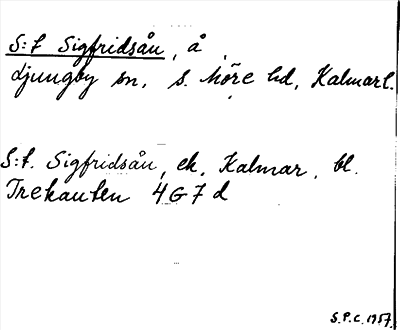 S:t Sigfridsån, å
Ljungby sn, s. Möre hd, Kalmarl.
S:t. Sigfridsån, ek, Kalmar, bl.
Trekanten 4G7d
S.P.C. 1957.